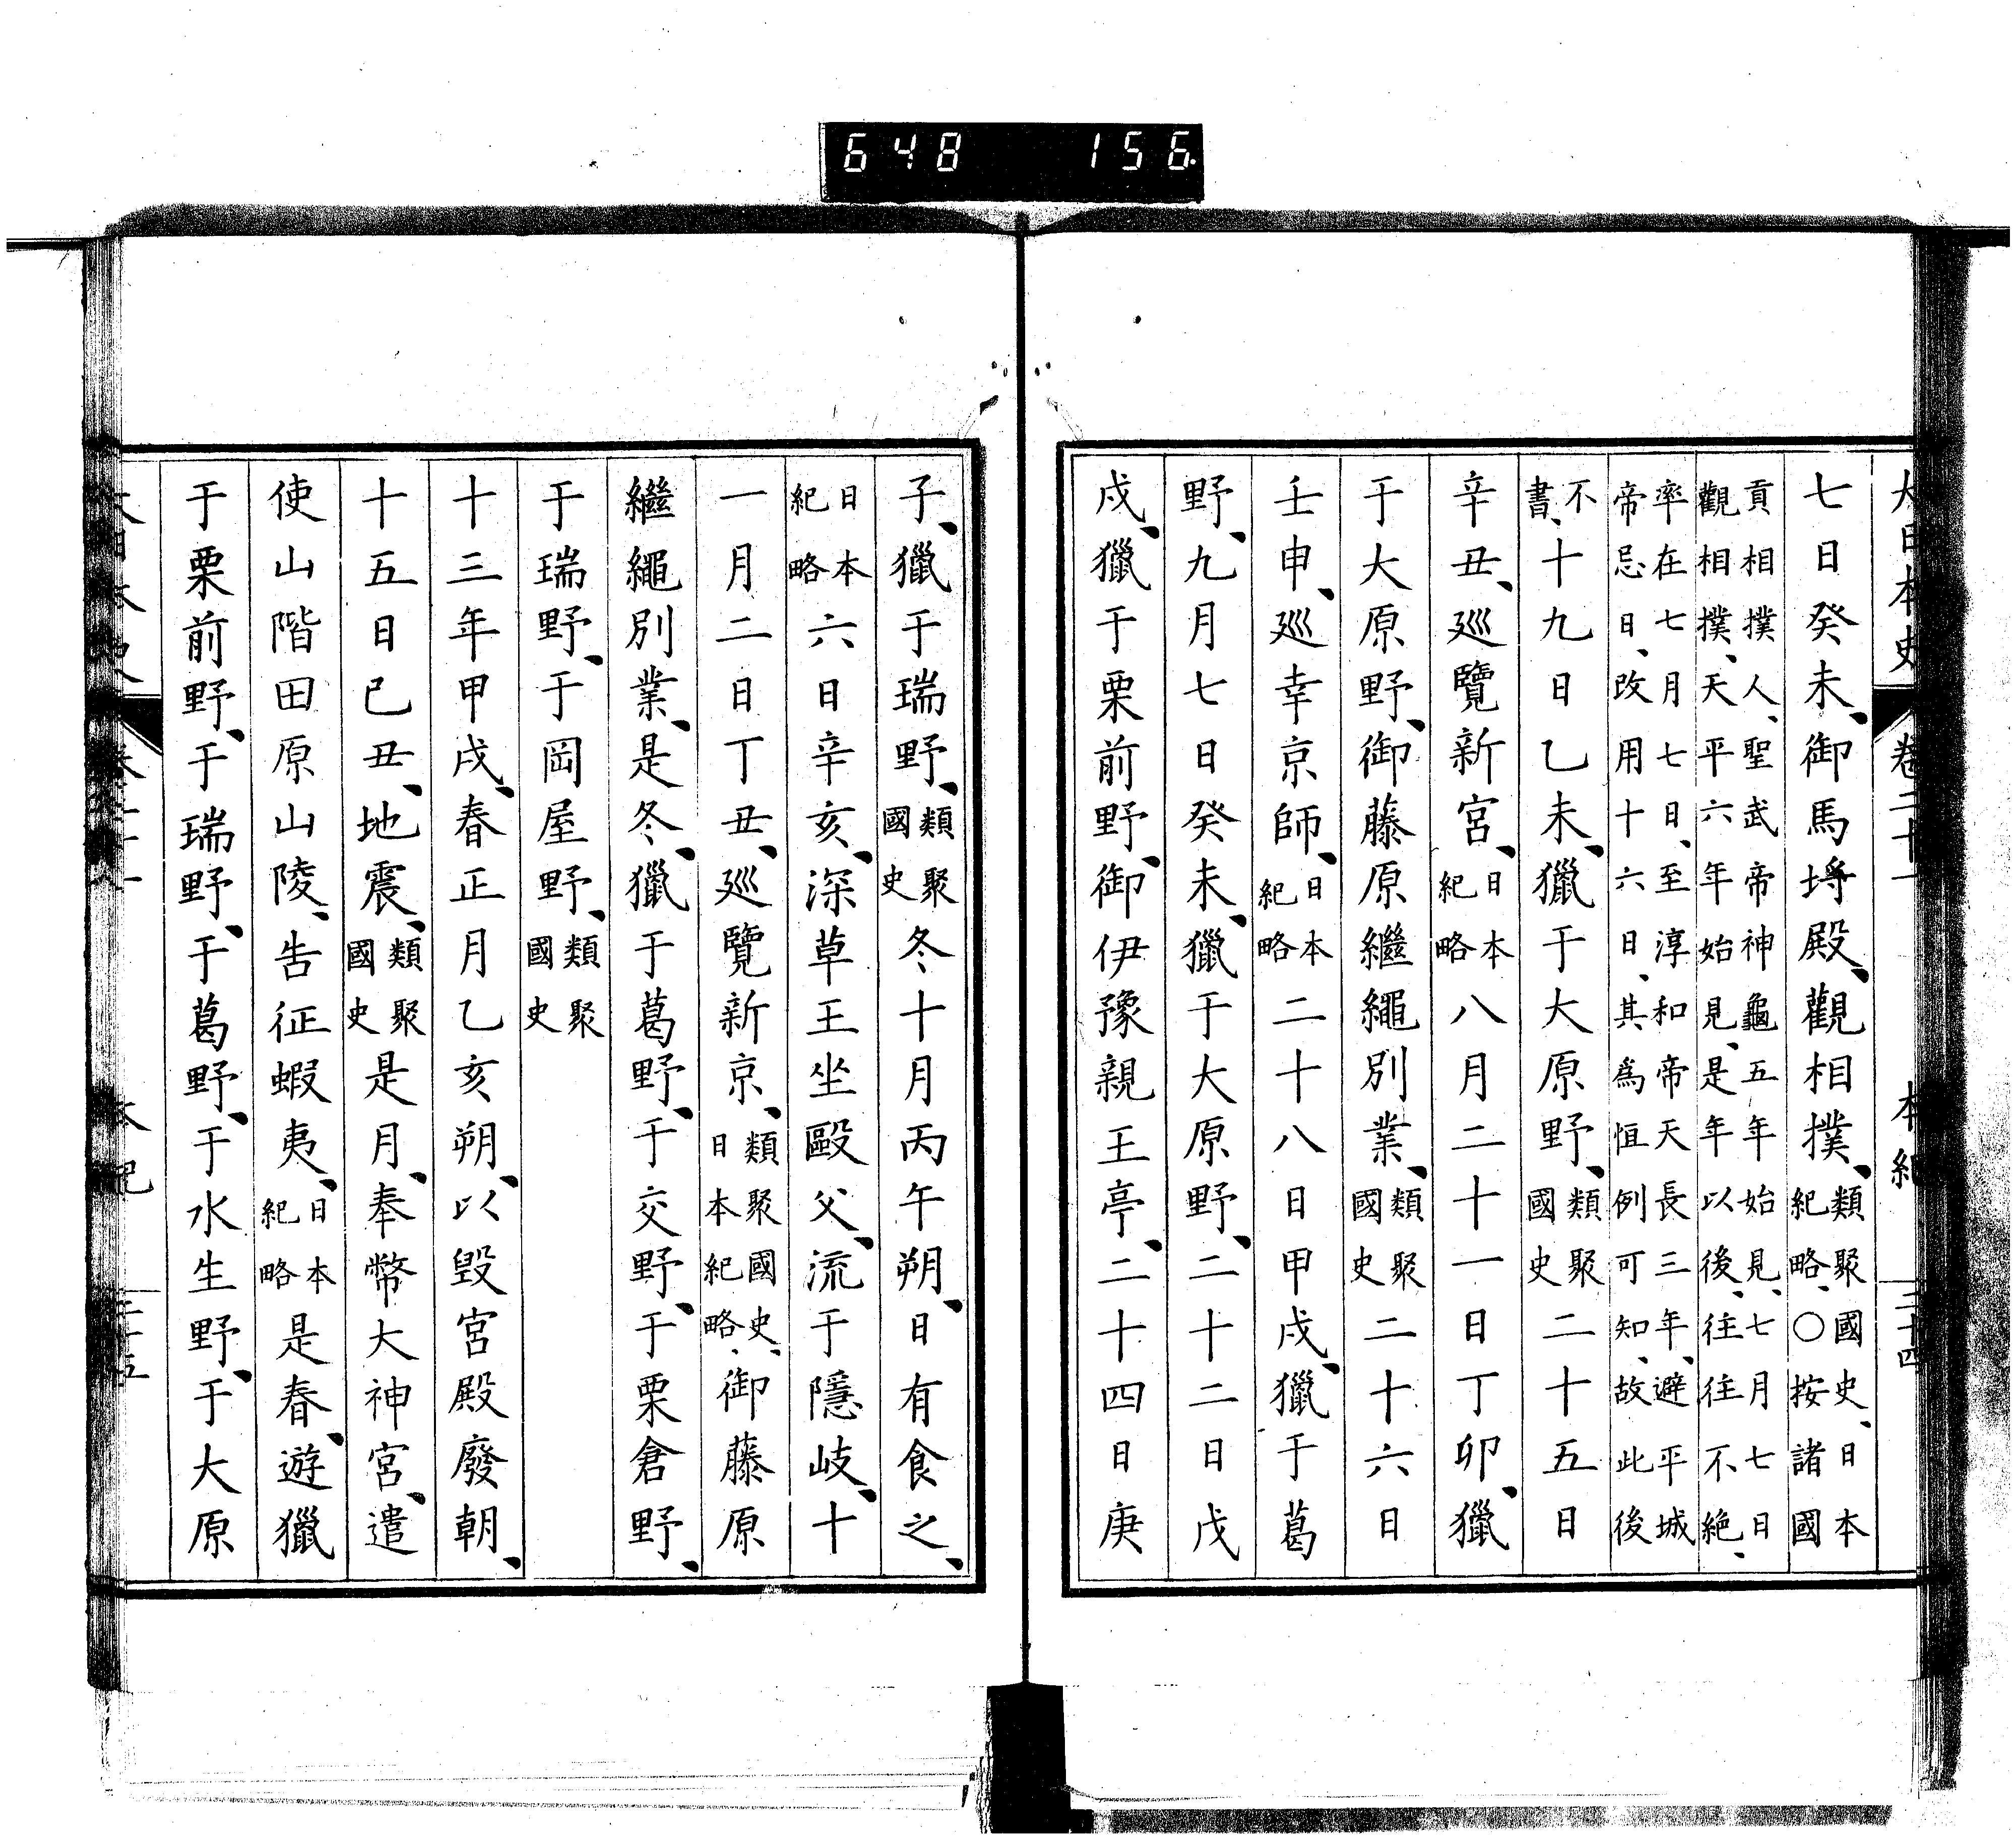 648 156
大日本史 卷二十一 本紀 二十四
七日癸未、御馬埒殿、觀相撲、類聚國史、日本紀略、○按諸國
貢相撲人、聖武帝神龜五年始見、七月七日
觀相撲、天平六年始見、是年以後、往往不絶、
率在七月七日、至淳和帝天長三年、避平城
帝忌日、改用十六日、其爲恒例可知、故此後
不書、十九日乙未、獵于大原野、類聚國史二十五日
辛丑、巡覽新宮、日本紀略八月二十一日丁卯、獵
于大原野、御藤原繼繩別業、類聚國史二十六日
壬申、巡幸京師、日本紀略二十八日甲戌、獵于葛
野、九月七日癸未、獵于大原野、二十二日戊
戌、獵于栗前野、御伊豫親王亭、二十四日庚
子、獵于瑞野、類聚國史冬十月丙午朔、日有食之、
日本紀略六日辛亥、深草王坐毆父、流于隱岐、十
一月二日丁丑、巡覽新京、類聚國史、日本紀略、御藤原
繼繩別業、是冬、獵于葛野、于交野、于栗倉野、
于瑞野、于岡屋野、類聚國史
十三年甲戌、春正月乙亥朔、以毀宮殿廢朝、
十五日己丑、地震、類聚國史是月、奉幣大神宮、遣
使山階田原山陵、告征蝦夷、日本紀略是春、遊獵
于栗前野、于瑞野、于葛野、于水生野、于大原